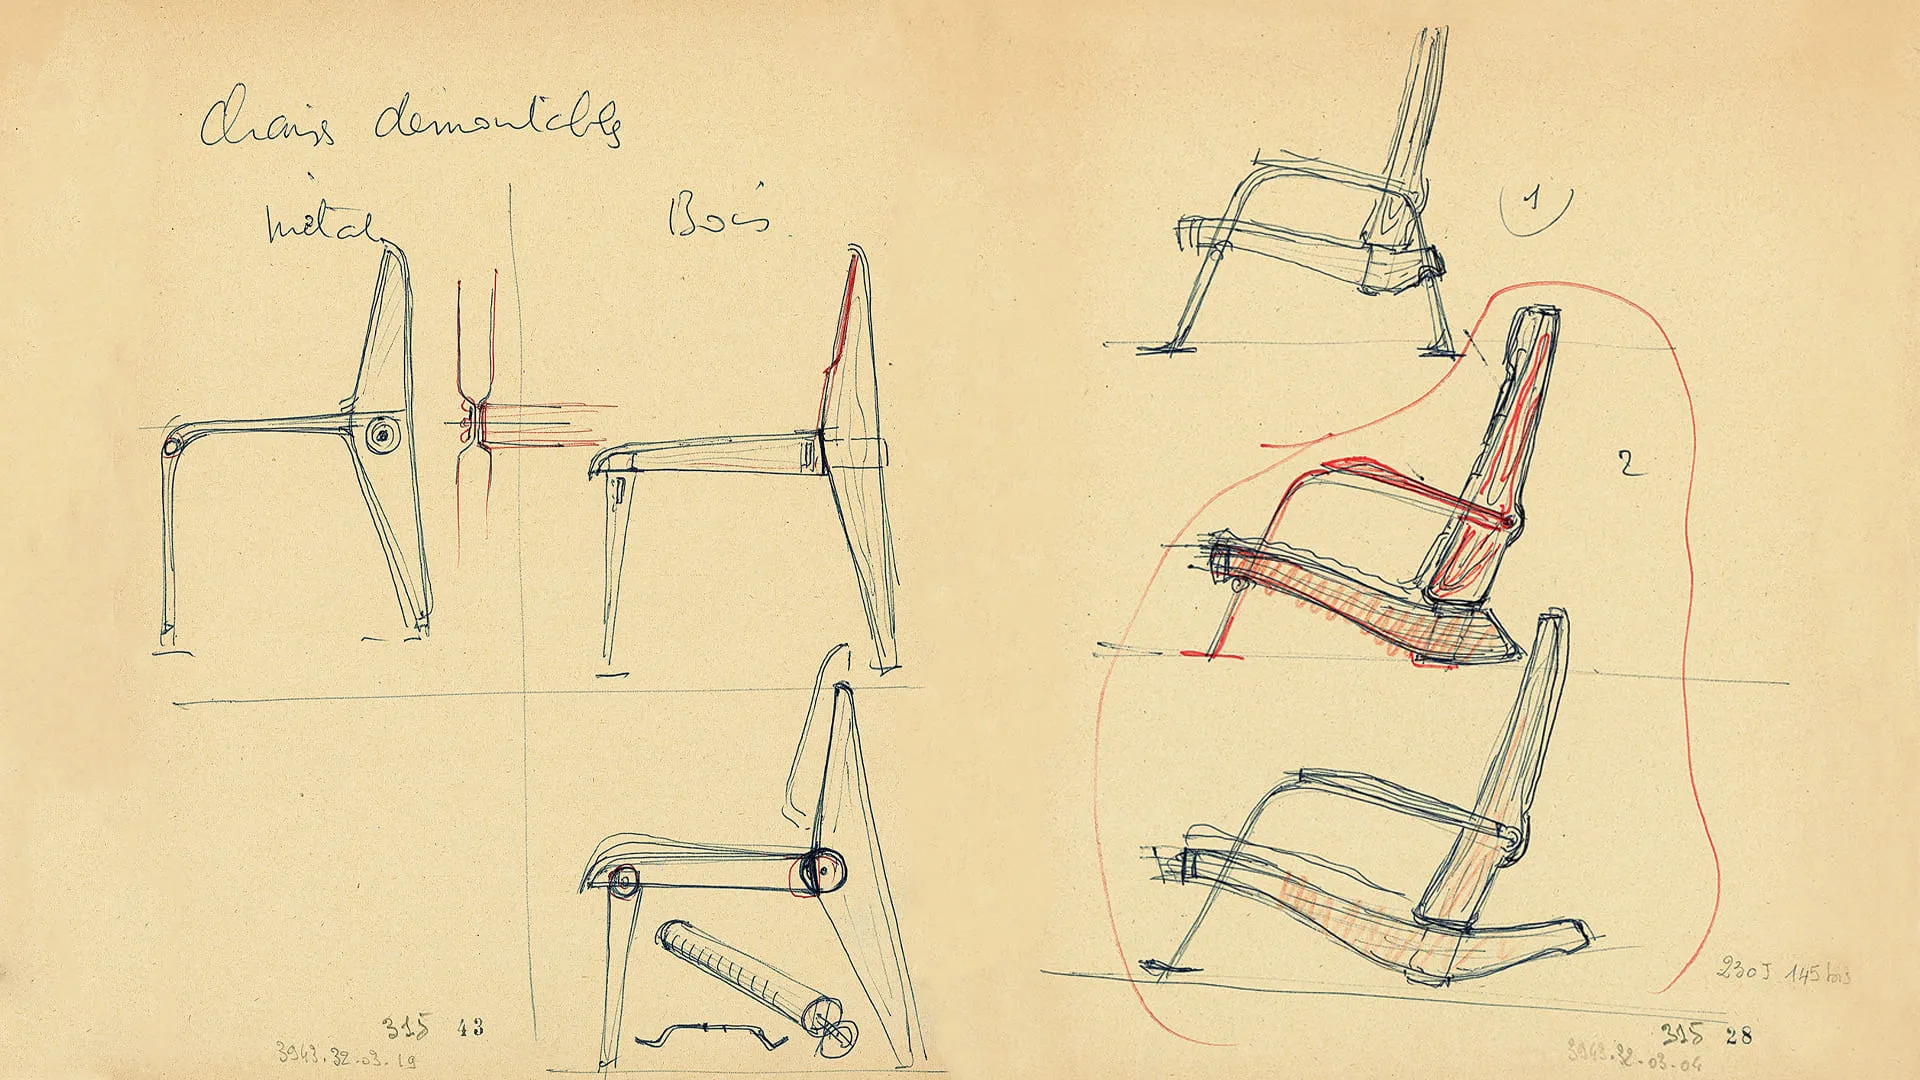 Chaises démontables
Métal
Bois
315 43
3943.32-03.19
1
2
230J 145 bois
315 28
3943.32-03-04